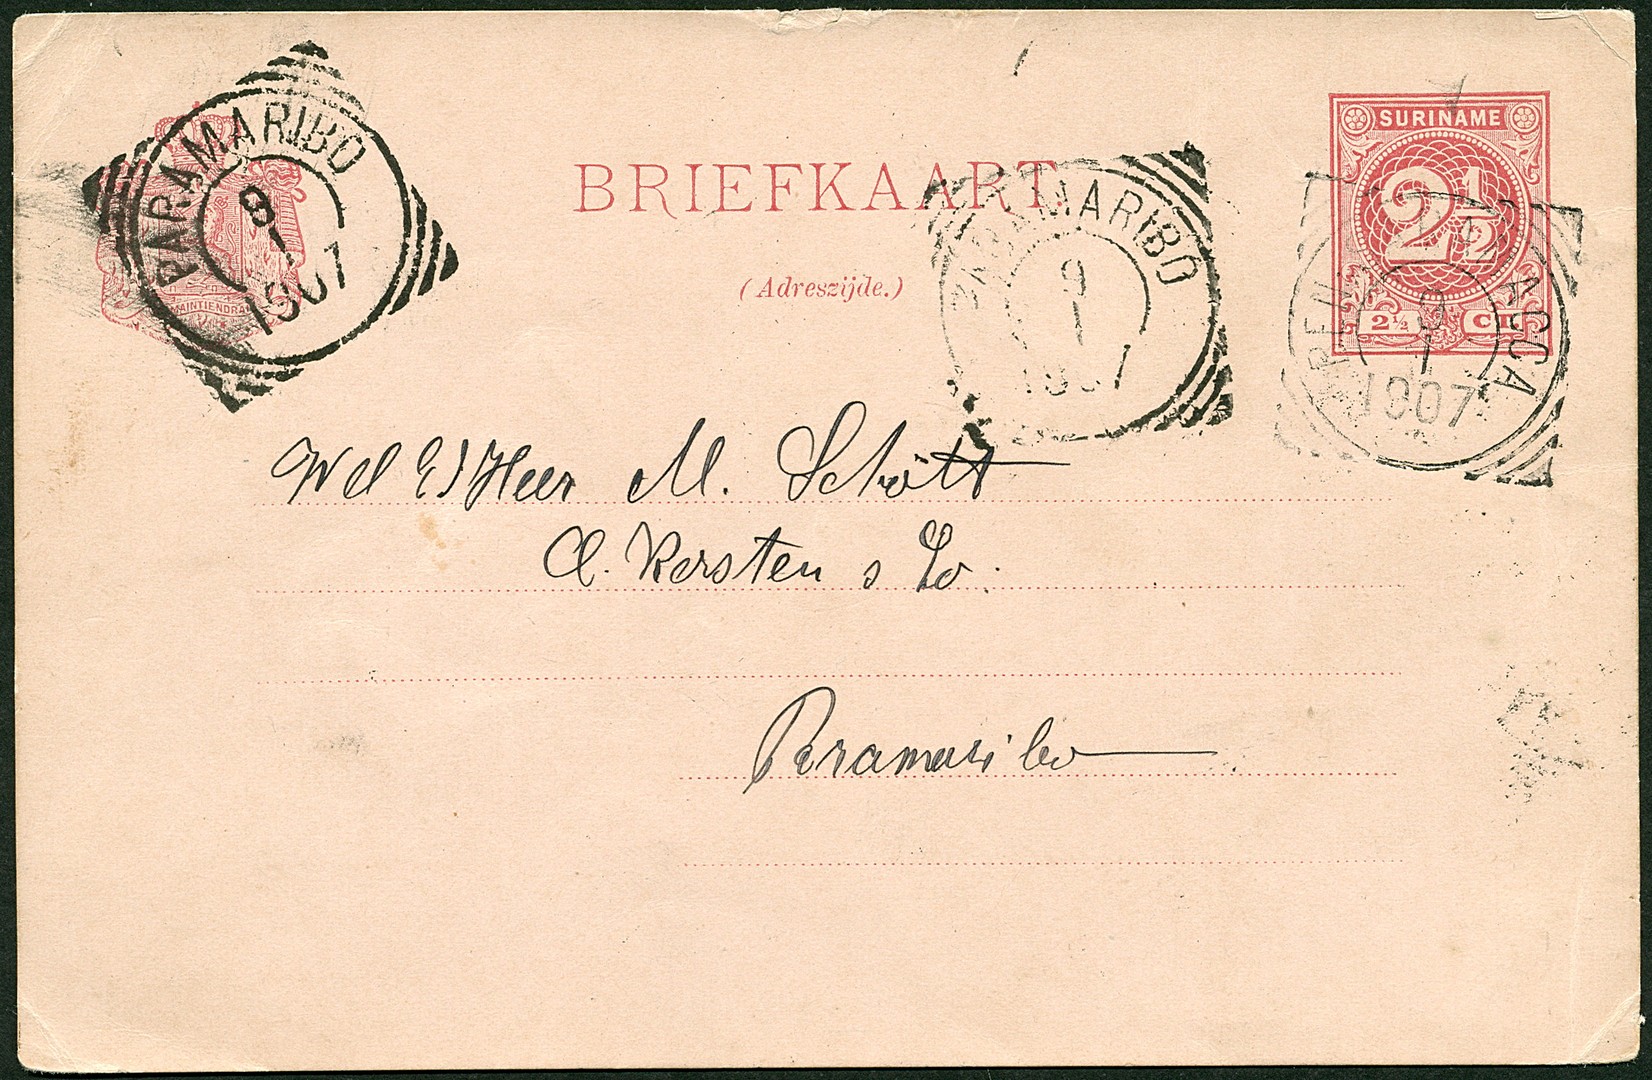 PARAMARIBO
9
1
1907
MAINTIENDRAI
BRIEFKAART
(Adreszijde.)
PARAMARIBO
9
1
1907
SURINAME
2 1/2
2 1/2 CT
SARAMACCA
9
1
1907
Wel Ed Heer M. Schött
C. Kersten & Co.
Paramaribo